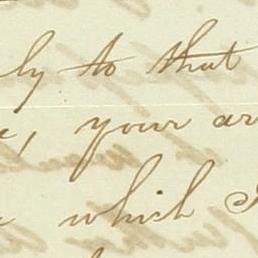 ly to that
your ar
which I